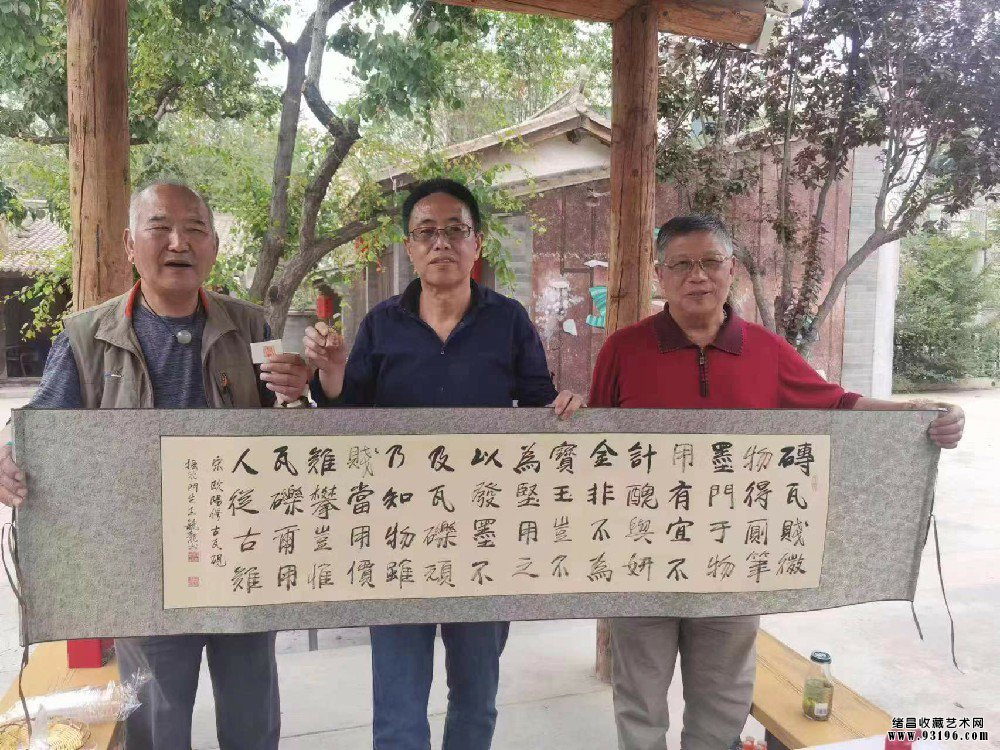 磚瓦賤微
物得廁筆
墨間于物
用有宜不
計醜與妍
金非不為
寶玉豈不
為堅用之
以發墨不
及瓦礫頑
乃知物雖
賤當用價
難攀豈惟
瓦礫爾用
人從古難
宋歐陽修古瓦硯
绪昌收藏艺术网
www.93196.com